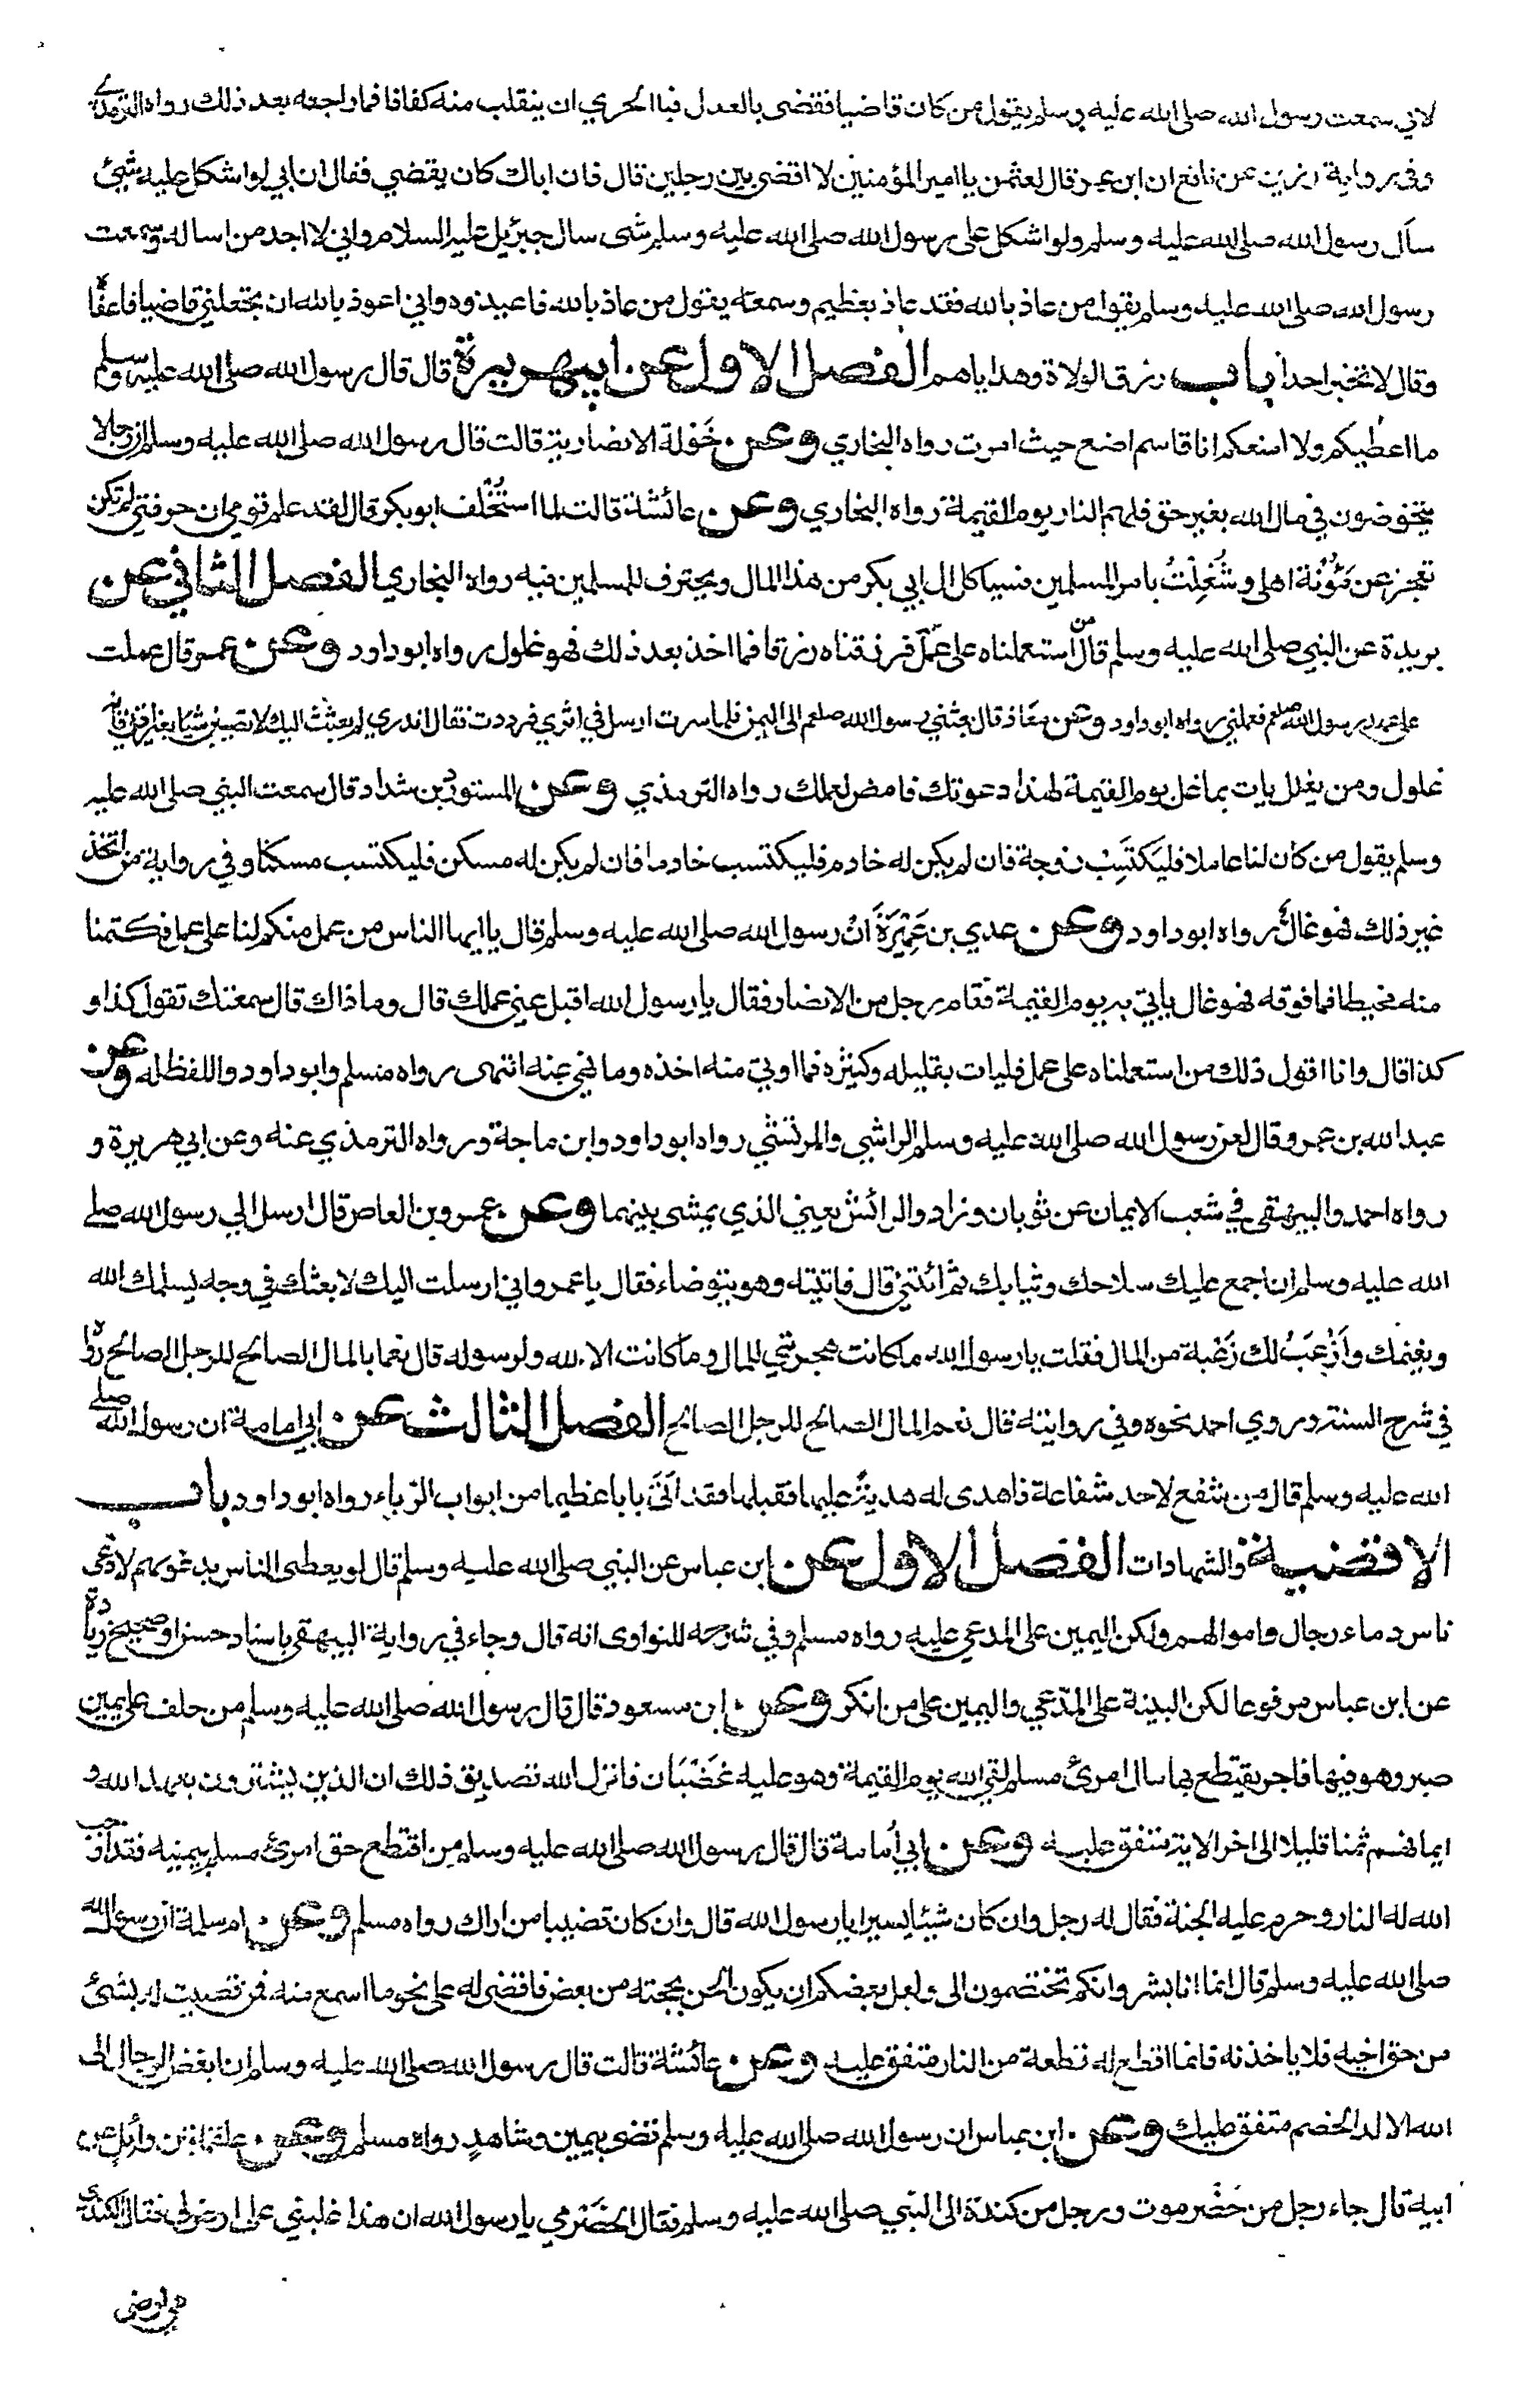 لاني سمعت رسول الله صلى الله عليه وسلم يقول من كان قاضيا فقضى بالعدل فبالحري ان ينقلب منه كفافا فما راجعه بعد ذلك رواه الترمذي
وفي رواية رزين عن نافع ان ابن عمر قال لعثمن يا امير المؤمنين لا اقضي بين رجلين قال فان اباك كان يقضي فقال ان ابي لو اشكل عليه شيئ
سأل رسول الله صلى الله عليه وسلم ولو اشكل على رسول الله صلى الله عليه وسلم شى سال جبرئيل عليه السلام واني لا اجد من اساله وسمعت
رسول الله صلى الله عليه وسلم يقول من عاذ بالله فقد عاذ بعظيم وسمعته يقول من عاذ بالله فاعيذوه واني اعوذ بالله ان تجعلني قاضيا فاعفاه
وقال لا تخبر احدا باب رزق الولاة وهداياهم الفصل الاول عن ابي هريرة قال قال رسول الله صلى الله عليه وسلم
ما اعطيكم ولا امنعكم انا قاسم اضع حيث امرت رواه البخاري وعن خَوْلة الانصارية قالت قال رسول الله صلى الله عليه وسلم ان رجالا
يتخوضون في مال الله بغير حق فلهم النار يوم القيمة رواه البخاري وعن عائشة قالت لما استُخْلف ابو بكر قال لقد علم قومي ان حرفتي لم تكن
تعجز عن مَؤُنة اهلي وشُغِلْتُ بامر المسلمين فسياكل ال ابي بكر من هذا المال ويحترف للمسلمين فيه رواه البخاري الفصل الثاني عن
بريدة عن النبي صلى الله عليه وسلم قال من استعملناه على عمل فرزقناه رزقا فما اخذ بعد ذلك فهو غلول رواه ابو داود وعن عمر قال عملت
على عهد رسول الله صلعم فعملني رواه ابو داود وعن معاذ قال بعثني رسول الله صلعم الى اليمن فلما سرت ارسل في اثري فرددت فقال اتدري لم بعثت اليك لا تصيبن شيئا بغير اذني فانه
غلول ومن يغلل يات بما غل يوم القيمة لهذا دعوتك فامض لعملك رواه الترمذي وعن المستورد بن شداد قال سمعت النبي صلى الله عليه
وسلم يقول من كان لنا عاملا فليَكتَسِبْ زوجة فان لم يكن له خادم فليكتسب خادما فان لم يكن له مسكن فليكتسب مسكنا وفي رواية من اتخذ
غير ذلك فهو غالٌّ رواه ابو داود وعن عدي بن عَمِيْرَةَ انّ رسول الله صلى الله عليه وسلم قال يا ايها الناس من عمل منكم لنا على عمل فكتمنا
منه مخيطا فما فوقه فهو غال ياتي به يوم القيمة فقام رجل من الانصار فقال يا رسول الله اقبل عني عملك قال وما ذاك قال سمعتك تقول كذا و
كذا قال وانا اقول ذلك من استعملناه على عمل فليات بقليله وكثيره فما اوتي منه اخذه وما نهي عنه انتهى رواه مسلم وابو داود واللفظ له وعن
عبد الله بن عمرو قال لعن رسول الله صلى الله عليه وسلم الراشي والمرتشي رواه ابو داود وابن ماجة ورواه الترمذي عنه وعن ابي هريرة و
رواه احمد والبيهقي في شعب الايمان عن ثوبان وزاد والرائش يعني الذي يمشي بينهما وعن عمرو بن العاص قال ارسل الي رسول الله صلى
الله عليه وسلم ان اجمع عليك سلاحك وثيابك ثم ائتني قال فاتيته وهو يتوضاء فقال يا عمرو اني ارسلت اليك لابعثك في وجه يسلمك الله
ويغنمك وأَزْعَبُ لك زَعْبة من المال فقلت يا رسول الله ما كانت هجرتي للمال وما كانت الا لله ولرسوله قال نعما بالمال الصالح للرجل الصالح رواه
في شرح السنة وروى احمد نحوه وفي روايته قال نعم المال الصالح للرجل الصالح الفصل الثالث عن ابي امامة ان رسول الله صلى
الله عليه وسلم قال من شفع لاحد شفاعة فاهدى له هدية عليها فقبلها فقد اَتَى بابا عظيما من ابواب الرّباء رواه ابو داود باب
الاقضية والشهادات الفصل الاول عن ابن عباس عن النبي صلى الله عليه وسلم قال لو يعطى الناس بدعوٰهم لادعى
ناس دماء رجال واموالهم ولكن اليمين على المدعى عليه رواه مسلم وفي شرحه للنواوى انه قال وجاء في رواية البيهقي باسناد حسن او صحيح زيادة
عن ابن عباس مرفوعا لكن البينة على المدّعي واليمين على من انكر وعن ابن مسعود قال قال رسول الله صلى الله عليه وسلم من حلف على يمين
صبر وهو فيها فاجر يقتطع بها مال امرئ مسلم لقي الله يوم القيمة وهو عليه غَضْبَان فانزل الله تصديق ذلك ان الذين يشترون بعهد الله و
ايمانهم ثمنا قليلا الى اخر الاية متفق عليه وعن ابي اُمامة قال قال رسول الله صلى الله عليه وسلم من اقتطع حق امرئ مسلم بيمينه فقد اوجب
الله له النار وحرم عليه الجنة فقال له رجل وان كان شيئا يسيرا يا رسول الله قال وان كان قضيبا من اراك رواه مسلم وعن ام سلمة ان رسول الله
صلى الله عليه وسلم قال انما انا بشر وانكم تختصمون الى ولعل بعضكم ان يكون الحن بحجته من بعض فاقضي له على نحو ما اسمع منه فمن قضيت له بشئ
من حق اخيه فلا ياخذنه فانما اقطع له قطعة من النار متفق عليه وعن عائشة قالت قال رسول الله صلى الله عليه وسلم ان ابغض الرجال الى
الله الالد الخصم متفق عليه وعن ابن عباس ان رسول الله صلى الله عليه وسلم قضى بيمين وشاهدٍ رواه مسلم وعن علقمة بن وائل عن
ابيه قال جاء رجل من حَضْرموت ورجل من كندة الى النبي صلى الله عليه وسلم فقال الحَضْرمي يا رسول الله ان هذا غلبني على ارض لي فقال الكندي
هي ارضى